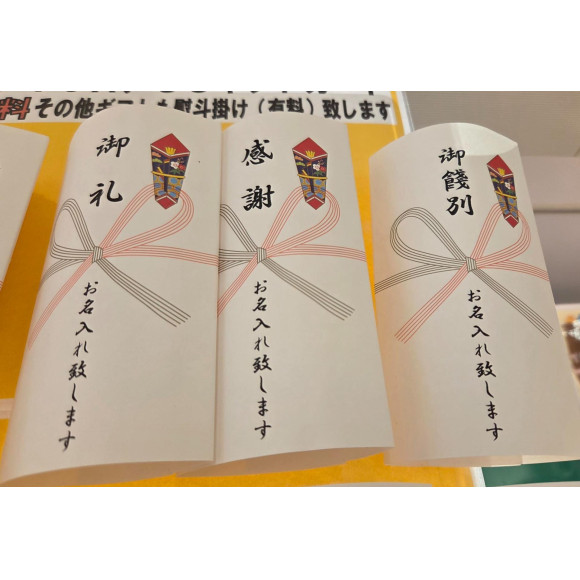 その他ギフトも熨斗掛け（有料）致します
御礼
お名入れ致します
感謝
お名入れ致します
御餞別
お名入れ致します